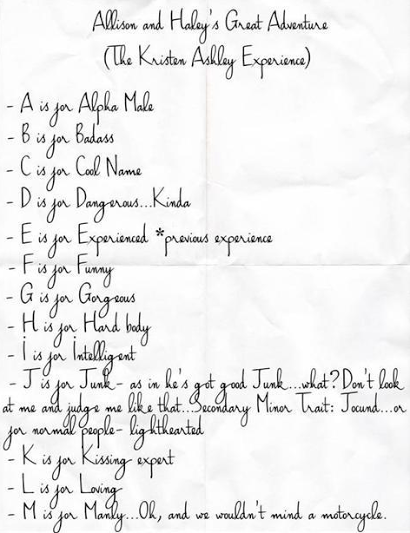 Allison and Haley's Great Adventure
(The Kristen Ashley Experience)
- A is for Alpha Male
- B is for Badass
- C is for Cool Name
- D is for Dangerous...Kinda
- E is for Experienced *previous experience
- F is for Funny
- G is for Gorgeous
- H is for Hard body
- I is for Intelligent
- J is for Junk- as in he's got good Junk...what? Don't look
at me and judge me like that...Secondary Minor Trait: Jocund...or
for normal people- lighthearted
- K is for Kissing expert
- L is for Loving
- M is for Manly...Oh, and we wouldn't mind a motorcycle.